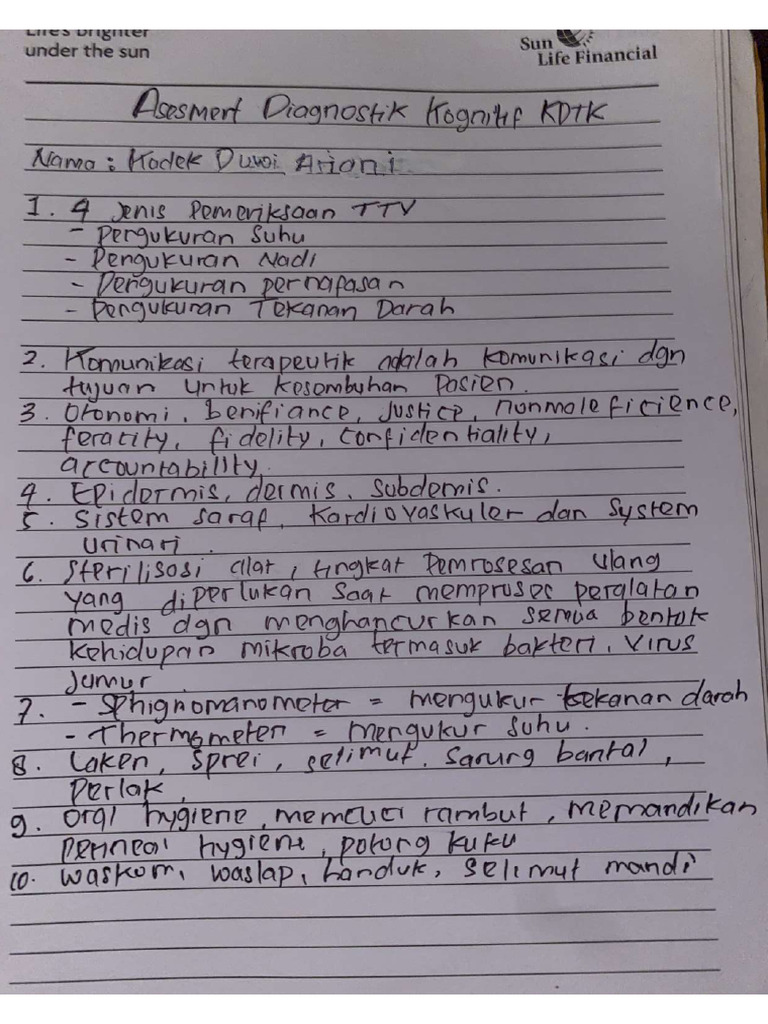 Life's brighter
under the sun
Sun
Life Financial
Asesment Diagnostik Kognitif KDTK
Nama : Kadek Duwi Ariani
1. 4 Jenis Pemeriksaan TTV
- Pergukuran Suhu
- Pengukuran Nadi
- Pengukuran pernafasan
- Pengukuran Tekanan Darah
2. Komunikasi terapeutik adalah komunikasi dgn
tujuan untuk kesembuhan Pasien.
3. Otonomi, benifiance, justice, nonmaleficience,
feracity, fidelity, confidentiality,
accountability.
4. Epidermis, dermis, subdemis.
5. Sistem saraf, Kardiovaskuler dan System
urinari.
6. Sterilisasi alat, tingkat Pemrosesan ulang
yang diperlukan saat memproses peralatan
medis dgn menghancurkan semua bentuk
kehidupan mikroba termasuk bakteri, virus
Jamur.
7. - Sphignomanometer = mengukur tekanan darah
- Thermometer = mengukur suhu.
8. Laken, Sprei, selimut, sarung bantal,
Perlak,
9. Oral hygiene, mencuci rambut, memandikan
Perineal hygiene, potong kuku
10. Waskom, waslap, handuk, selimut mandi